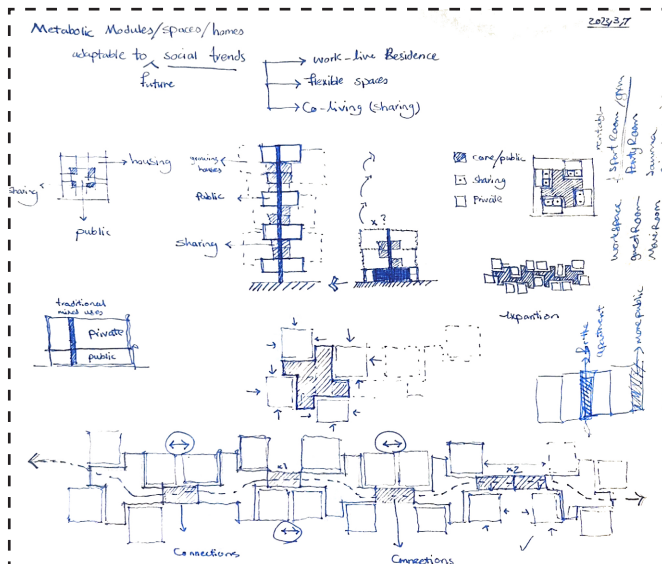 2023/3/7
Metabolic Modules/spaces/homes
adaptable to social trends
future
work-live Residence
flexible spaces
Co-living (sharing)
housing
sharing
public
growing
houses
public
sharing
x?
core/public
sharing
private
Party Room
Sauna
workspace
guest Room
traditional
mixed uses
private
public
expantion
for the
apartment
more public
x1
x2
Connections
Connections